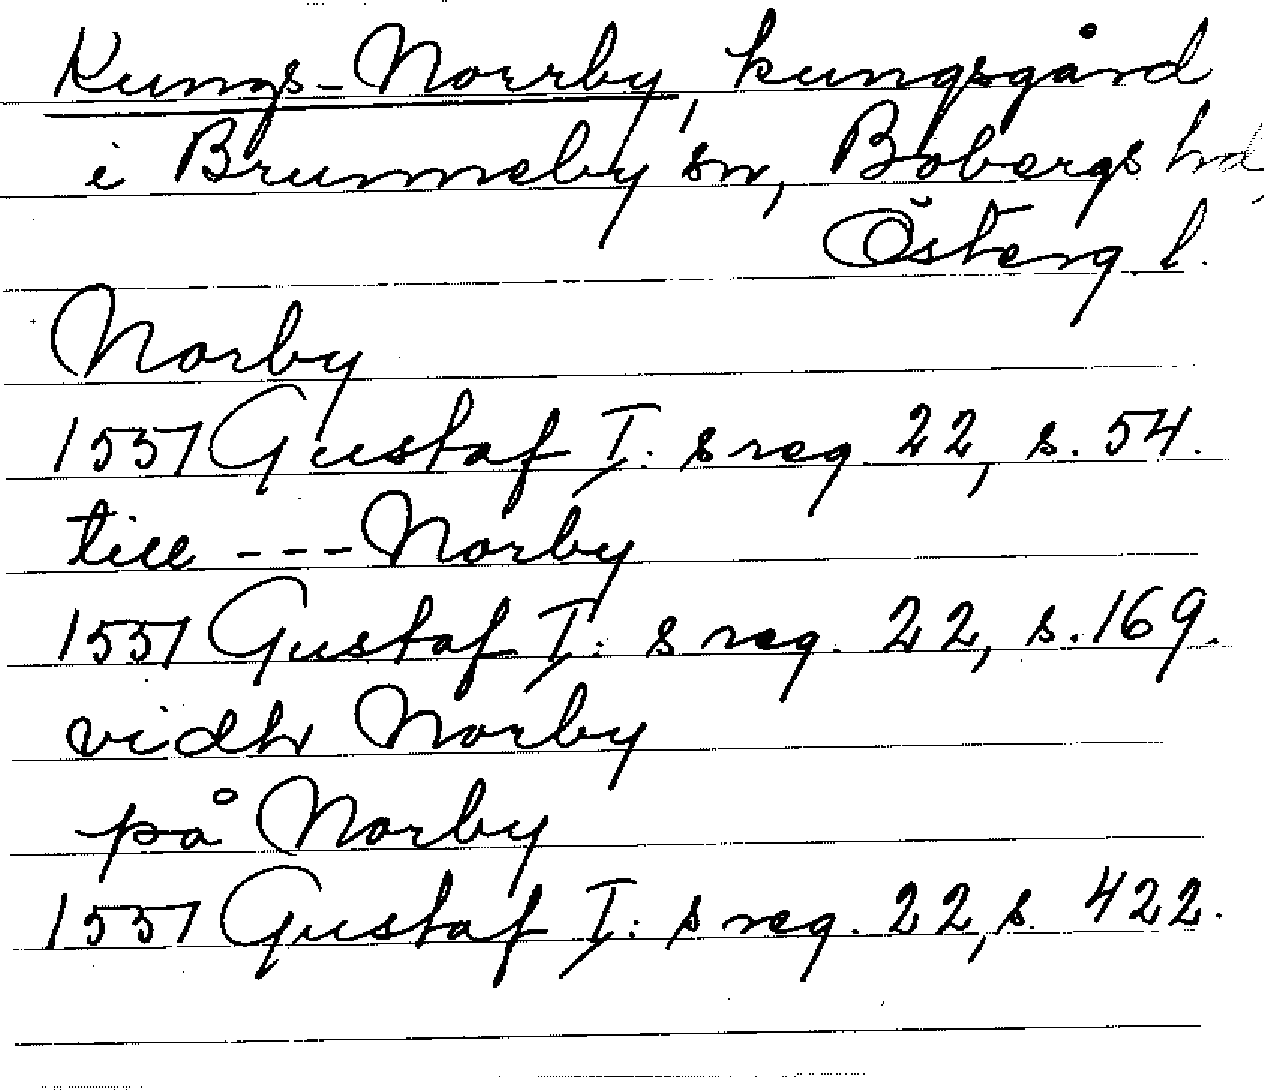 Kungs-Norrby, kungsgård
i Brunneby sn, Bobergs hd,
Österg. l.
Norby
1551 Gustaf I:s reg. 22, s. 54.
till --- Norby
1551 Gustaf I:s reg. 22, s. 169.
vidh Norby
på Norby
1551 Gustaf I:s reg. 22, s. 422.